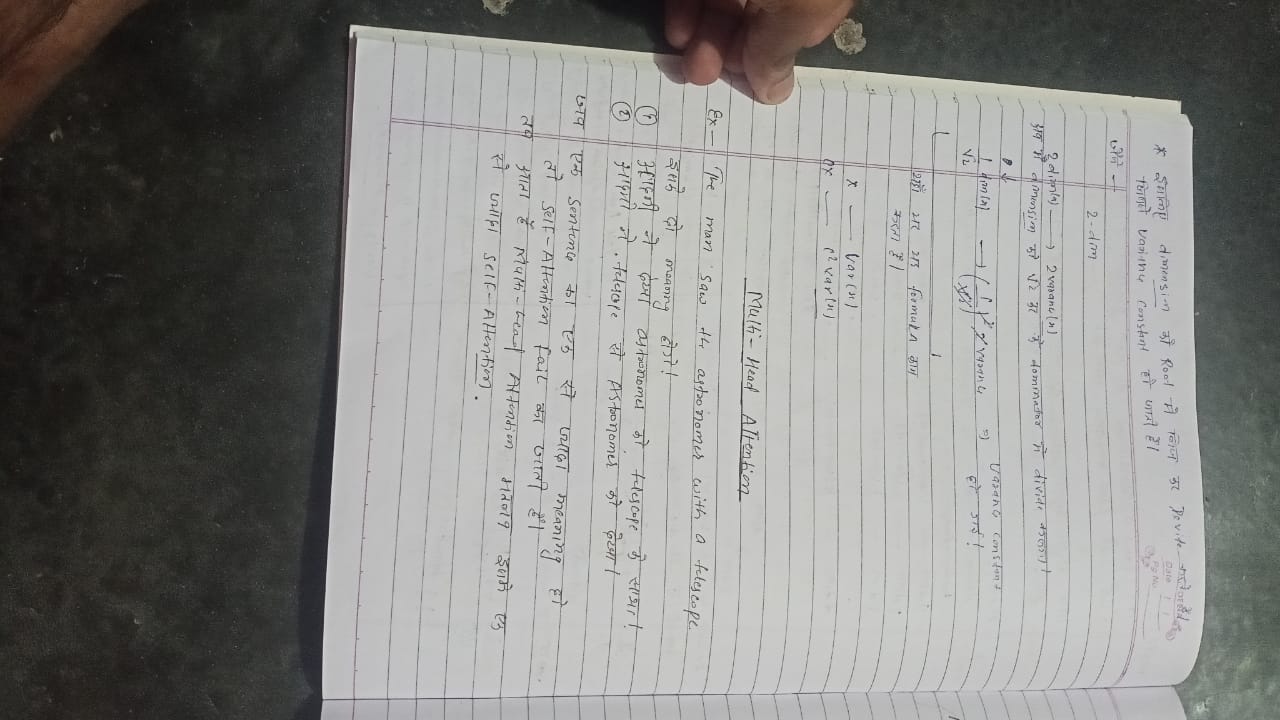 * इसलिए dimension को Root में लिख कर Devide करते हैं।
Date
Pg No
जिससे variance constant हो जाती है।
जैसे -
2-dim
2 dim(x) → 2 varianc(x)
अब मैं dimension को √2 कर के dominator में divide करूगा।
1/√2 dim(x) → (1/√2)² 2 varianc ⇒ Varianc constant
हो गई!
यहाँ पर यह formula काम
करता है।
x — Var(x)
cx — c² var(x)
Multi-Head Attention
Ex - The man saw the astronomer with a telescope
इसके दो meaning होगे!
① आदमी ने देखा astronomer को telescope के साथ!
② आदमी ने telescope से Astronomer को देखा।
जब एक sentence का एक से ज्यादा meaning हो
तो Self-Attention fail का जाती हैं।
तब आता हैं Multi-head Attention मतलब इसमे एक
से ज्यादा Self-Attention.